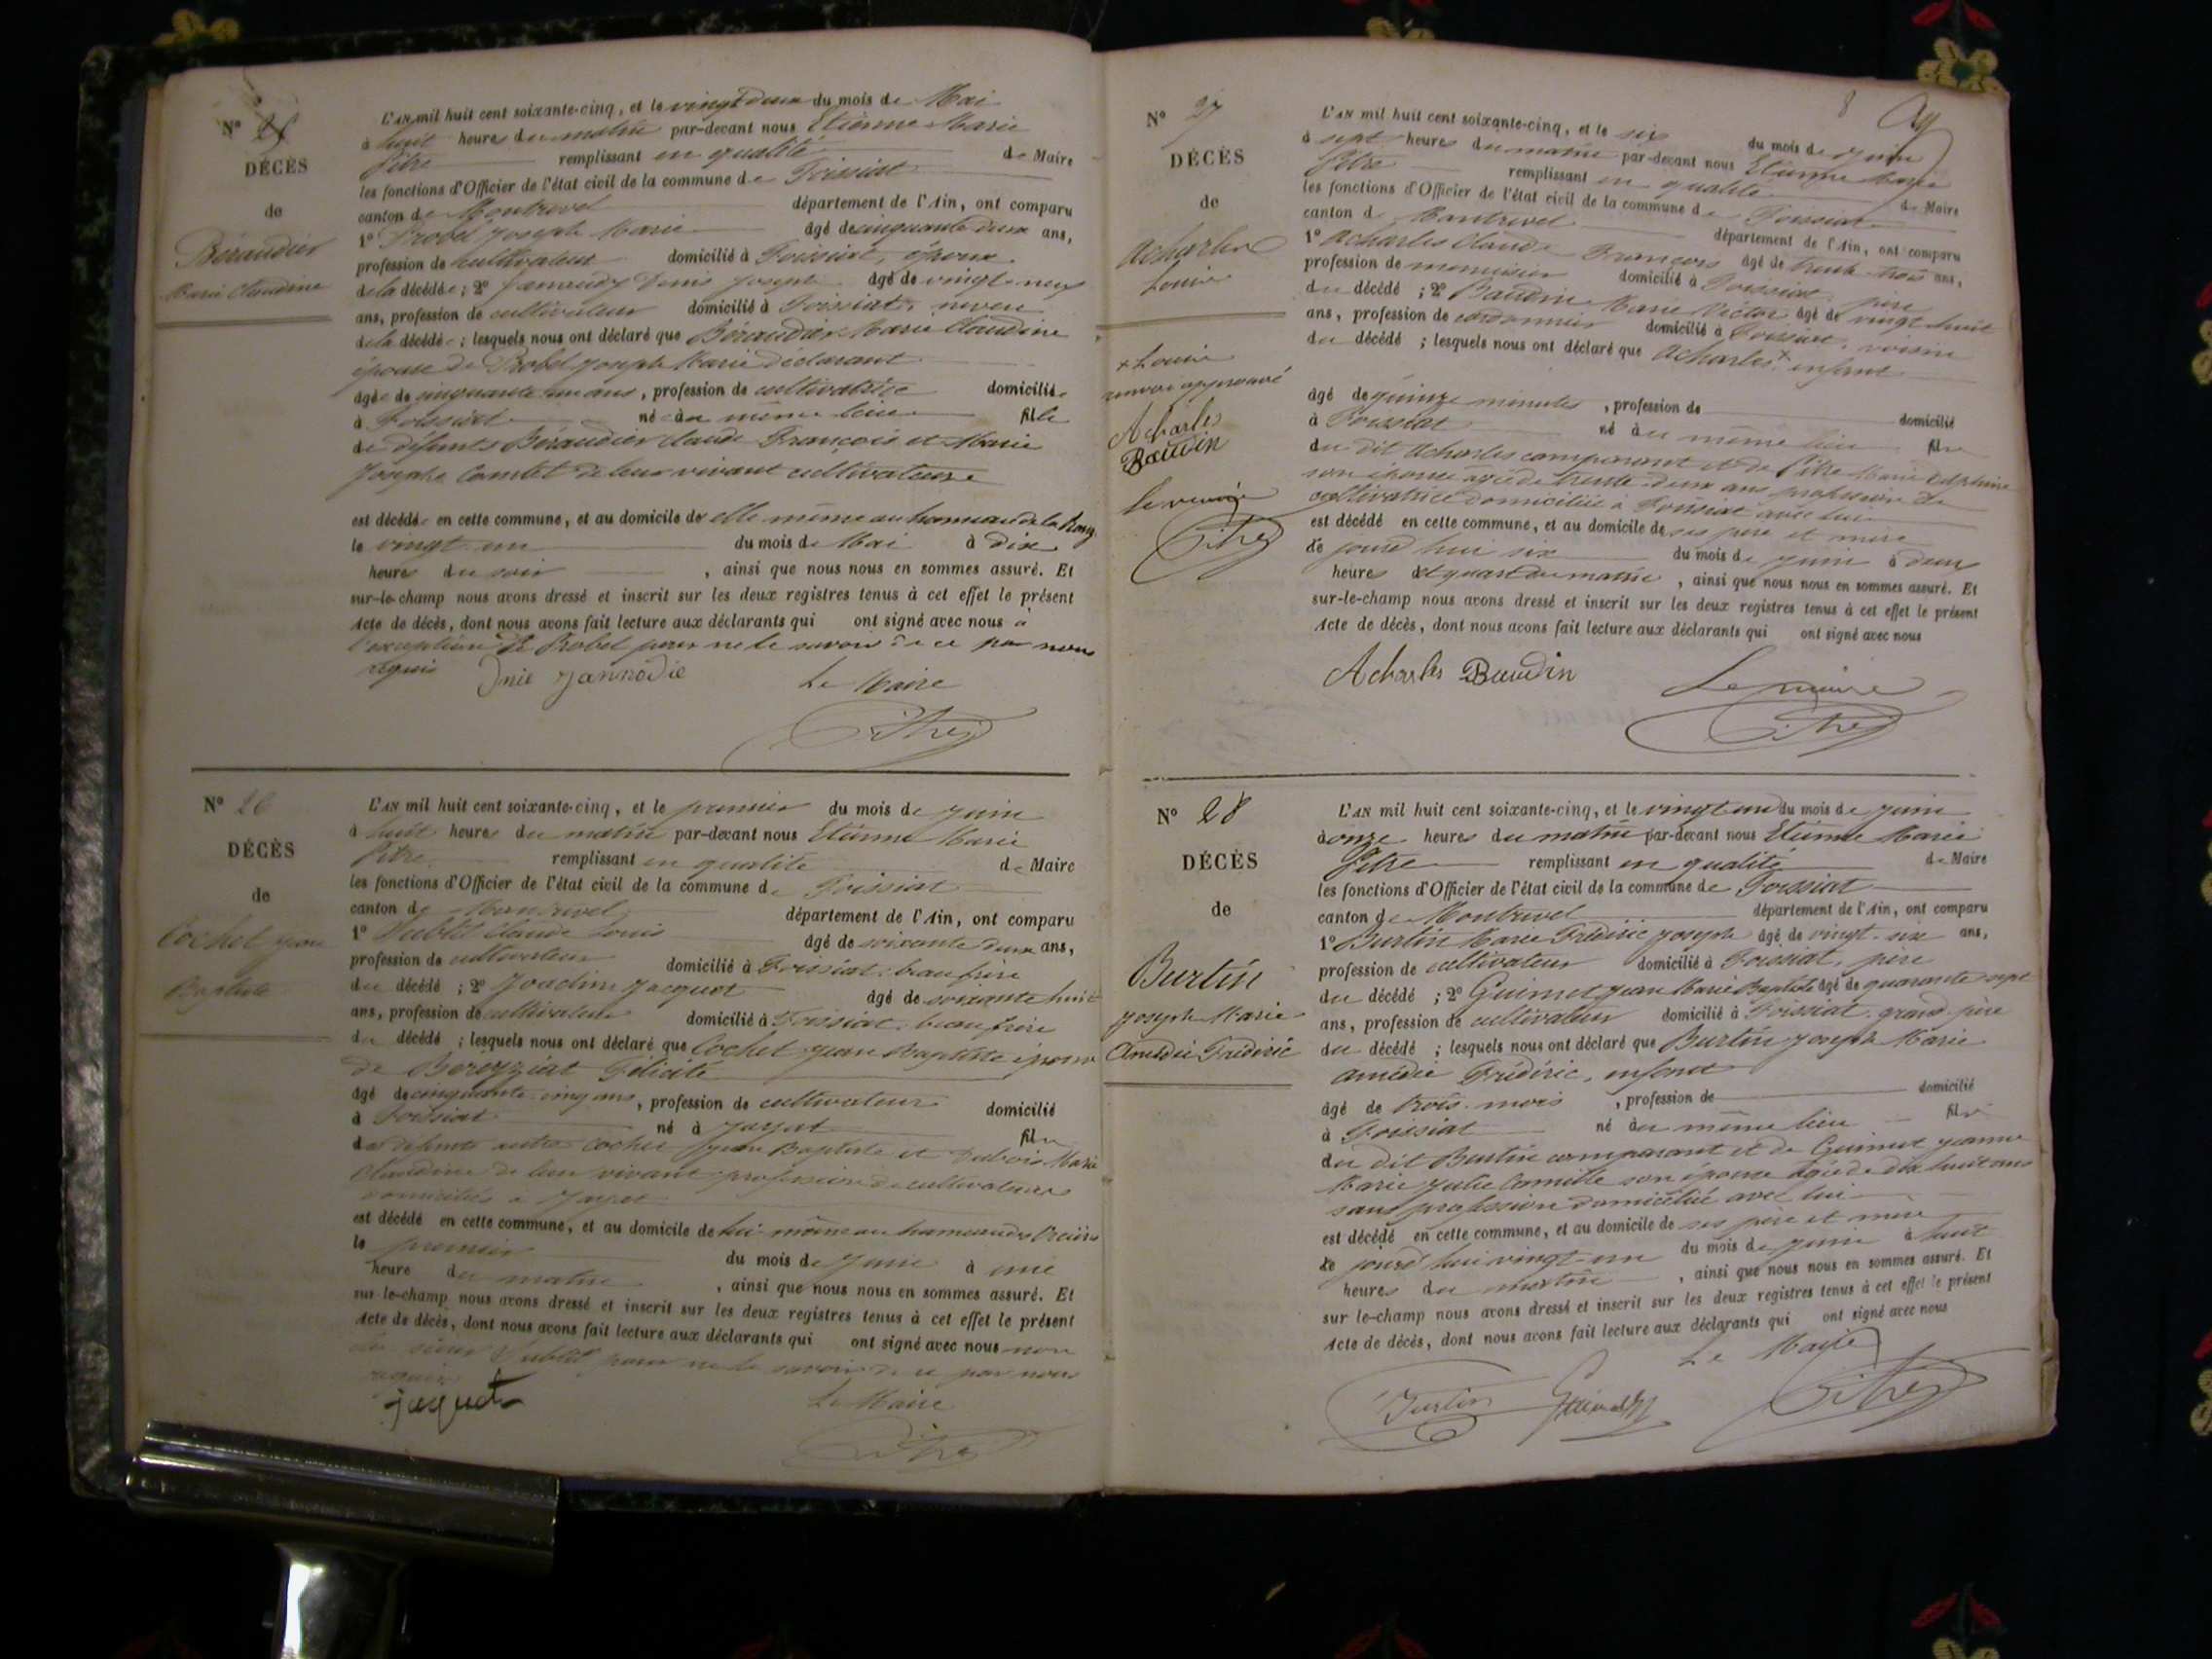 N° 25
DÉCÈS
de
Béraudier
Marie Claudine
L'AN mil huit cent soixante-cinq, et le vingt deux du mois de Mai
à huit heure du matin par-devant nous Etienne Marie
Pitre remplissant en qualité de Maire
les fonctions d'Officier de l'état civil de la commune de Foissiat
canton de Montrevel département de l'Ain, ont comparu
1° Probel Joseph Marie âgé de cinquante deux ans,
profession de cultivateur domicilié à Foissiat, époux
de la décédée ; 2° Denis Joseph âgé de vingt neuf
ans, profession de cultivateur domicilié à Foissiat, neveu
de la décédée ; lesquels nous ont déclaré que Béraudier Marie Claudine
épouse de Probel Joseph Marie déclarant
âgée de cinquante un ans, profession de cultivatrice domiciliée
à Foissiat né au même lieu fille
de défunts Béraudier Claude François et Marie
Josephe Comtet de leur vivant cultivateurs
est décédée en cette commune, et au domicile de elle même au hameau de la
le vingt un du mois de Mai à dix
heures du soir, ainsi que nous nous en sommes assuré. Et
sur-le-champ nous avons dressé et inscrit sur les deux registres tenus à cet effet le présent
Acte de décès, dont nous avons fait lecture aux déclarants qui ont signé avec nous à
l'exception de Probel pour ne le savoir de ce par nous
requis
Le Maire
Pitre
N° 26
DÉCÈS
de
Cochet Jean
Baptiste
L'AN mil huit cent soixante-cinq, et le premier du mois de Juin
à huit heures du matin par-devant nous Etienne Marie
Pitre remplissant en qualité de Maire
les fonctions d'Officier de l'état civil de la commune de Foissiat
canton de Montrevel département de l'Ain, ont comparu
1° Claude Louis âgé de soixante deux ans,
profession de cultivateur domicilié à Foissiat, beau frère
du décédé ; 2° Joachim Jacquet âgé de soixante huit
ans, profession de cultivateur domicilié à Foissiat, beau frère
du décédé ; lesquels nous ont déclaré que Cochet Jean Baptiste époux
de Béréyziat Félicité
âgé de cinquante cinq ans, profession de cultivateur domicilié
à Foissiat né à Jayat fils
de défunts autre Cochet Jean Baptiste et Dubois Marie
Claudine de leur vivant profession de cultivateurs
domiciliés à Jayat
est décédé en cette commune, et au domicile de lui-même au hameau des
le premier du mois de Juin à une
heure du matin, ainsi que nous nous en sommes assuré. Et
sur-le-champ nous avons dressé et inscrit sur les deux registres tenus à cet effet le présent
Acte de décès, dont nous avons fait lecture aux déclarants qui ont signé avec nous non
sieur pour ne le savoir de ce par nous
requis
jaquet
Le Maire
Pitre
8
N° 27
DÉCÈS
de
Acharles
Louis
+ Louis
renvoi approuvé
Acharles
Baudin
Le maire
Pitre
L'AN mil huit cent soixante-cinq, et le six du mois de Juin
à sept heures du matin par-devant nous Etienne Marie
Pitre remplissant en qualité de Maire
les fonctions d'Officier de l'état civil de la commune de Foissiat
canton de Montrevel département de l'Ain, ont comparu
1° Acharles Claude François âgé de trente trois ans,
profession de menuisier domicilié à Foissiat, père
du décédé ; 2° Baudin Marie Victor âgé de vingt huit
ans, profession de cordonnier domicilié à Foissiat, voisin
du décédé ; lesquels nous ont déclaré que Acharles + enfant
âgé de quinze minutes, profession de domicilié
à Foissiat né au même lieu fils
du dit Acharles comparant et de Pitre Marie Delphine
son épouse âgée de trente-deux ans profession de
cultivatrice domiciliée à Foissiat avec lui
est décédé en cette commune, et au domicile de ses père et mère
le jourd'hui six du mois de Juin à deux
heures et quart du matin, ainsi que nous nous en sommes assuré. Et
sur-le-champ nous avons dressé et inscrit sur les deux registres tenus à cet effet le présent
Acte de décès, dont nous avons fait lecture aux déclarants qui ont signé avec nous
Acharles Baudin Le maire
Pitre
N° 28
DÉCÈS
de
Burtin
Joseph Marie
Amédée Frédéric
L'AN mil huit cent soixante-cinq, et le vingt un du mois de Juin
à onze heures du matin par-devant nous Etienne Marie
Pitre remplissant en qualité de Maire
les fonctions d'Officier de l'état civil de la commune de Foissiat
canton de Montrevel département de l'Ain, ont comparu
1° Burtin Marie Frédéric Joseph âgé de vingt-six ans,
profession de cultivateur domicilié à Foissiat, père
du décédé ; 2° Guimet Jean Marie Baptiste âgé de quarante sept
ans, profession de cultivateur domicilié à Foissiat grand-père
du décédé ; lesquels nous ont déclaré que Burtin Joseph Marie
Amédée Frédéric, enfant
âgé de trois mois, profession de domicilié
à Foissiat né au même lieu fils
du dit Burtin comparant et de Guimet Jeanne
Marie Julie Camille son épouse âgée de dix huit ans
sans profession domiciliée avec lui
est décédé en cette commune, et au domicile de ses père et mère
le jourd'hui vingt-un du mois de Juin à huit
heures du matin, ainsi que nous nous en sommes assuré. Et
sur-le-champ nous avons dressé et inscrit sur les deux registres tenus à cet effet le présent
Acte de décès, dont nous avons fait lecture aux déclarants qui ont signé avec nous
Le Maire
Burtin Pitre